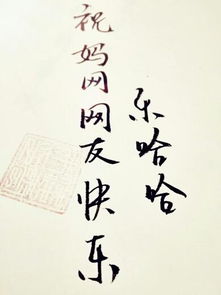 祝妈网网友快乐
乐哈哈